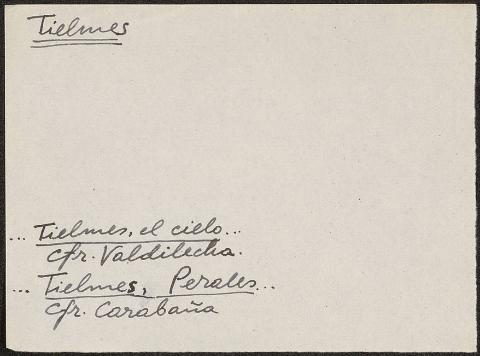 Tielmes
... Tielmes, el cielo...
cfr. Valdilecha.
... Tielmes, Perales...
cfr. Carabaña